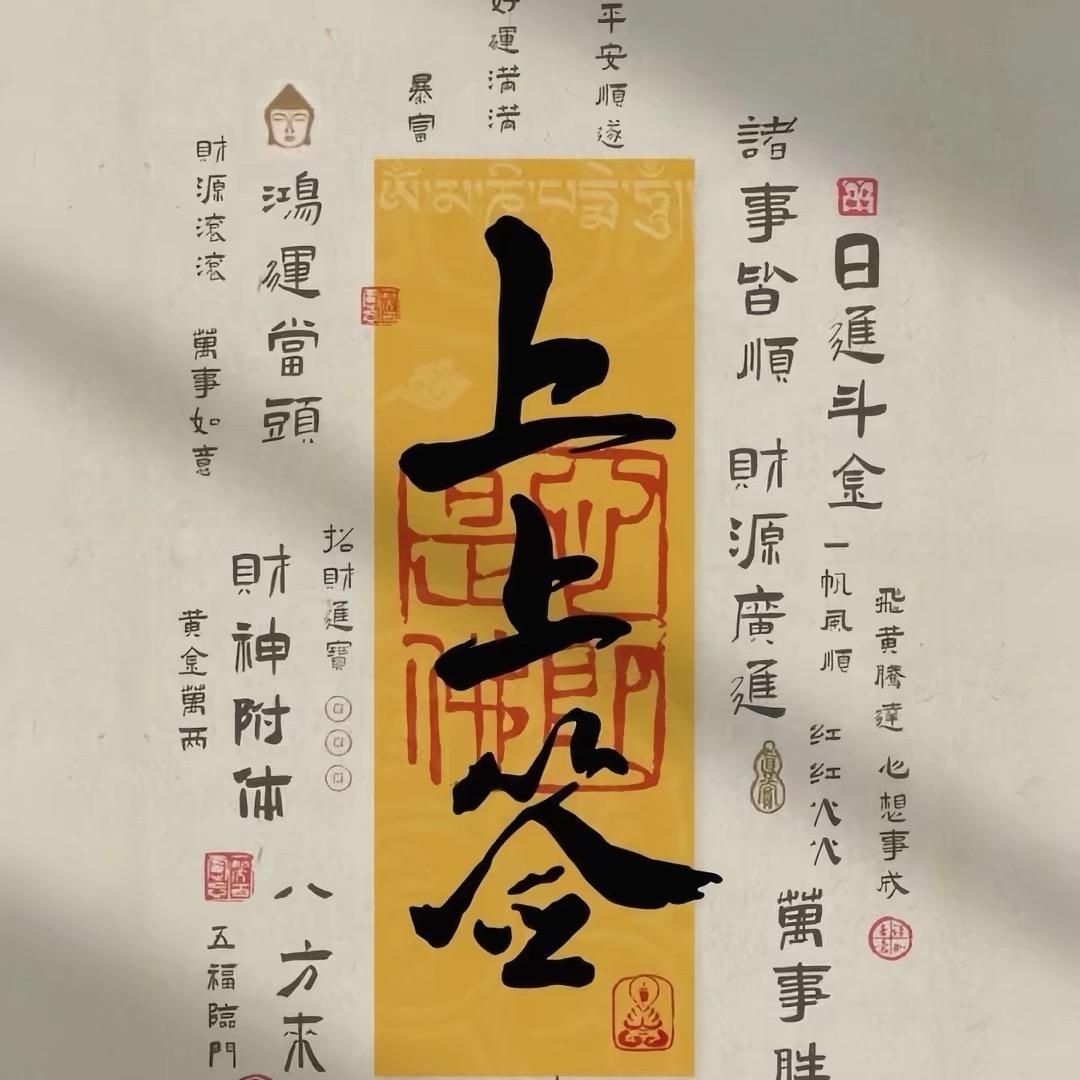 好運满满
平安順遂
暴富
諸事皆順
日進斗金
財源滾滾
鴻運當頭
萬事如意
ༀ་མ་ཎི་པདྨེ་ཧཱུྃ།
上上签
財源廣進
一帆風順
飛黄騰達
心想事成
红红火火
招財進寶
財神附体
黄金萬两
心即
是佛
八方来
五福臨門
萬事胜